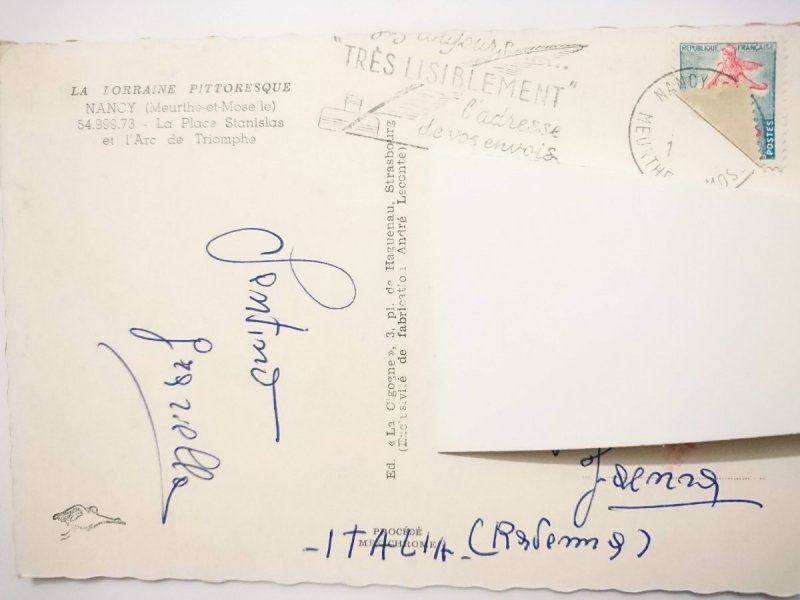 LA LORRAINE PITTORESQUE
NANCY (Meurthe-et-Moselle)
54.999.73 - La Place Stanislas
et l'Arc de Triomphe
toujours
"TRÈS LISIBLEMENT"
l'adresse
de vos envois
REPUBLIQUE FRANÇAISE
POSTES
NANCY
MEURTHE
MOS.
Ed. «La Cigogne», 3, pl. de Haguenau, Strasbourg
(Exclusivité de fabrication André Leconte)
Santino
Graziella
Faenza
-ITALIA-(Ravenna)
PROCÉDÉ
MEXICHROME